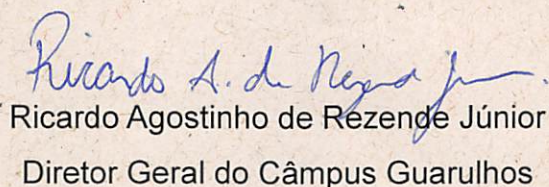 Ricardo A. de Rezende Jr.
Ricardo Agostinho de Rezende Júnior
Diretor Geral do Câmpus Guarulhos